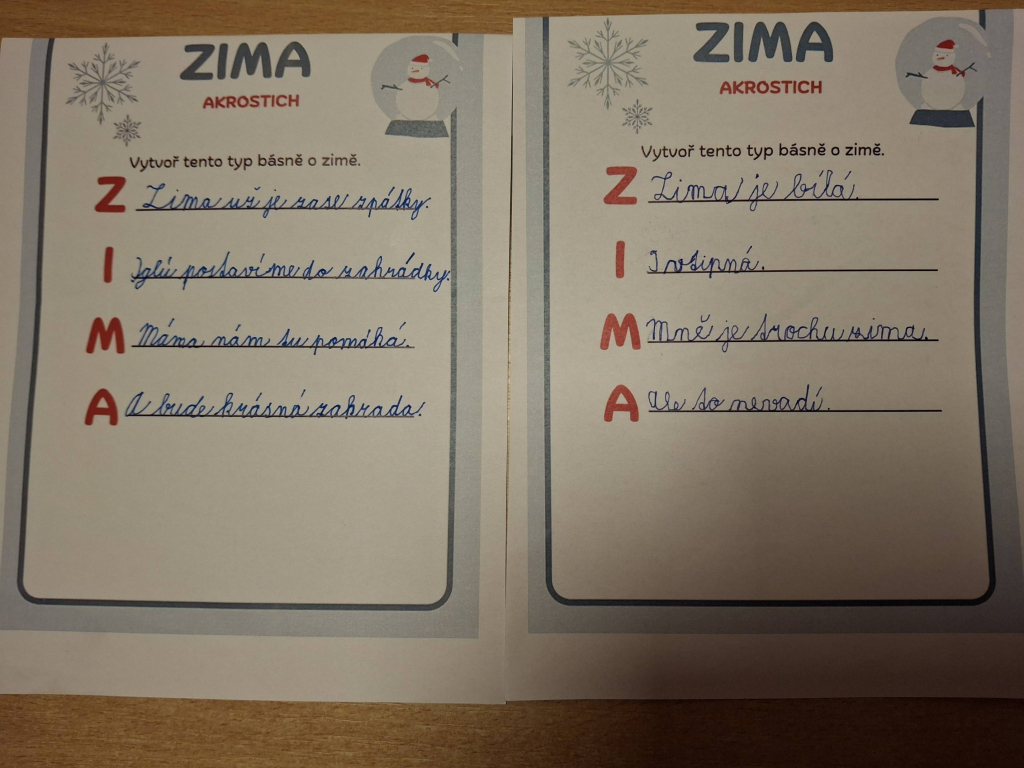 ZIMA
AKROSTICH
Vytvoř tento typ básně o zimě.
Z Zima už je zase zpátky.
I Iglú postavíme do zahrádky.
M Máma nám tu pomáhá.
A A bude krásná zahrada.
ZIMA
AKROSTICH
Vytvoř tento typ básně o zimě.
Z Zima je bílá.
I I vtipná.
M Mně je trochu zima.
A Ale to nevadí.